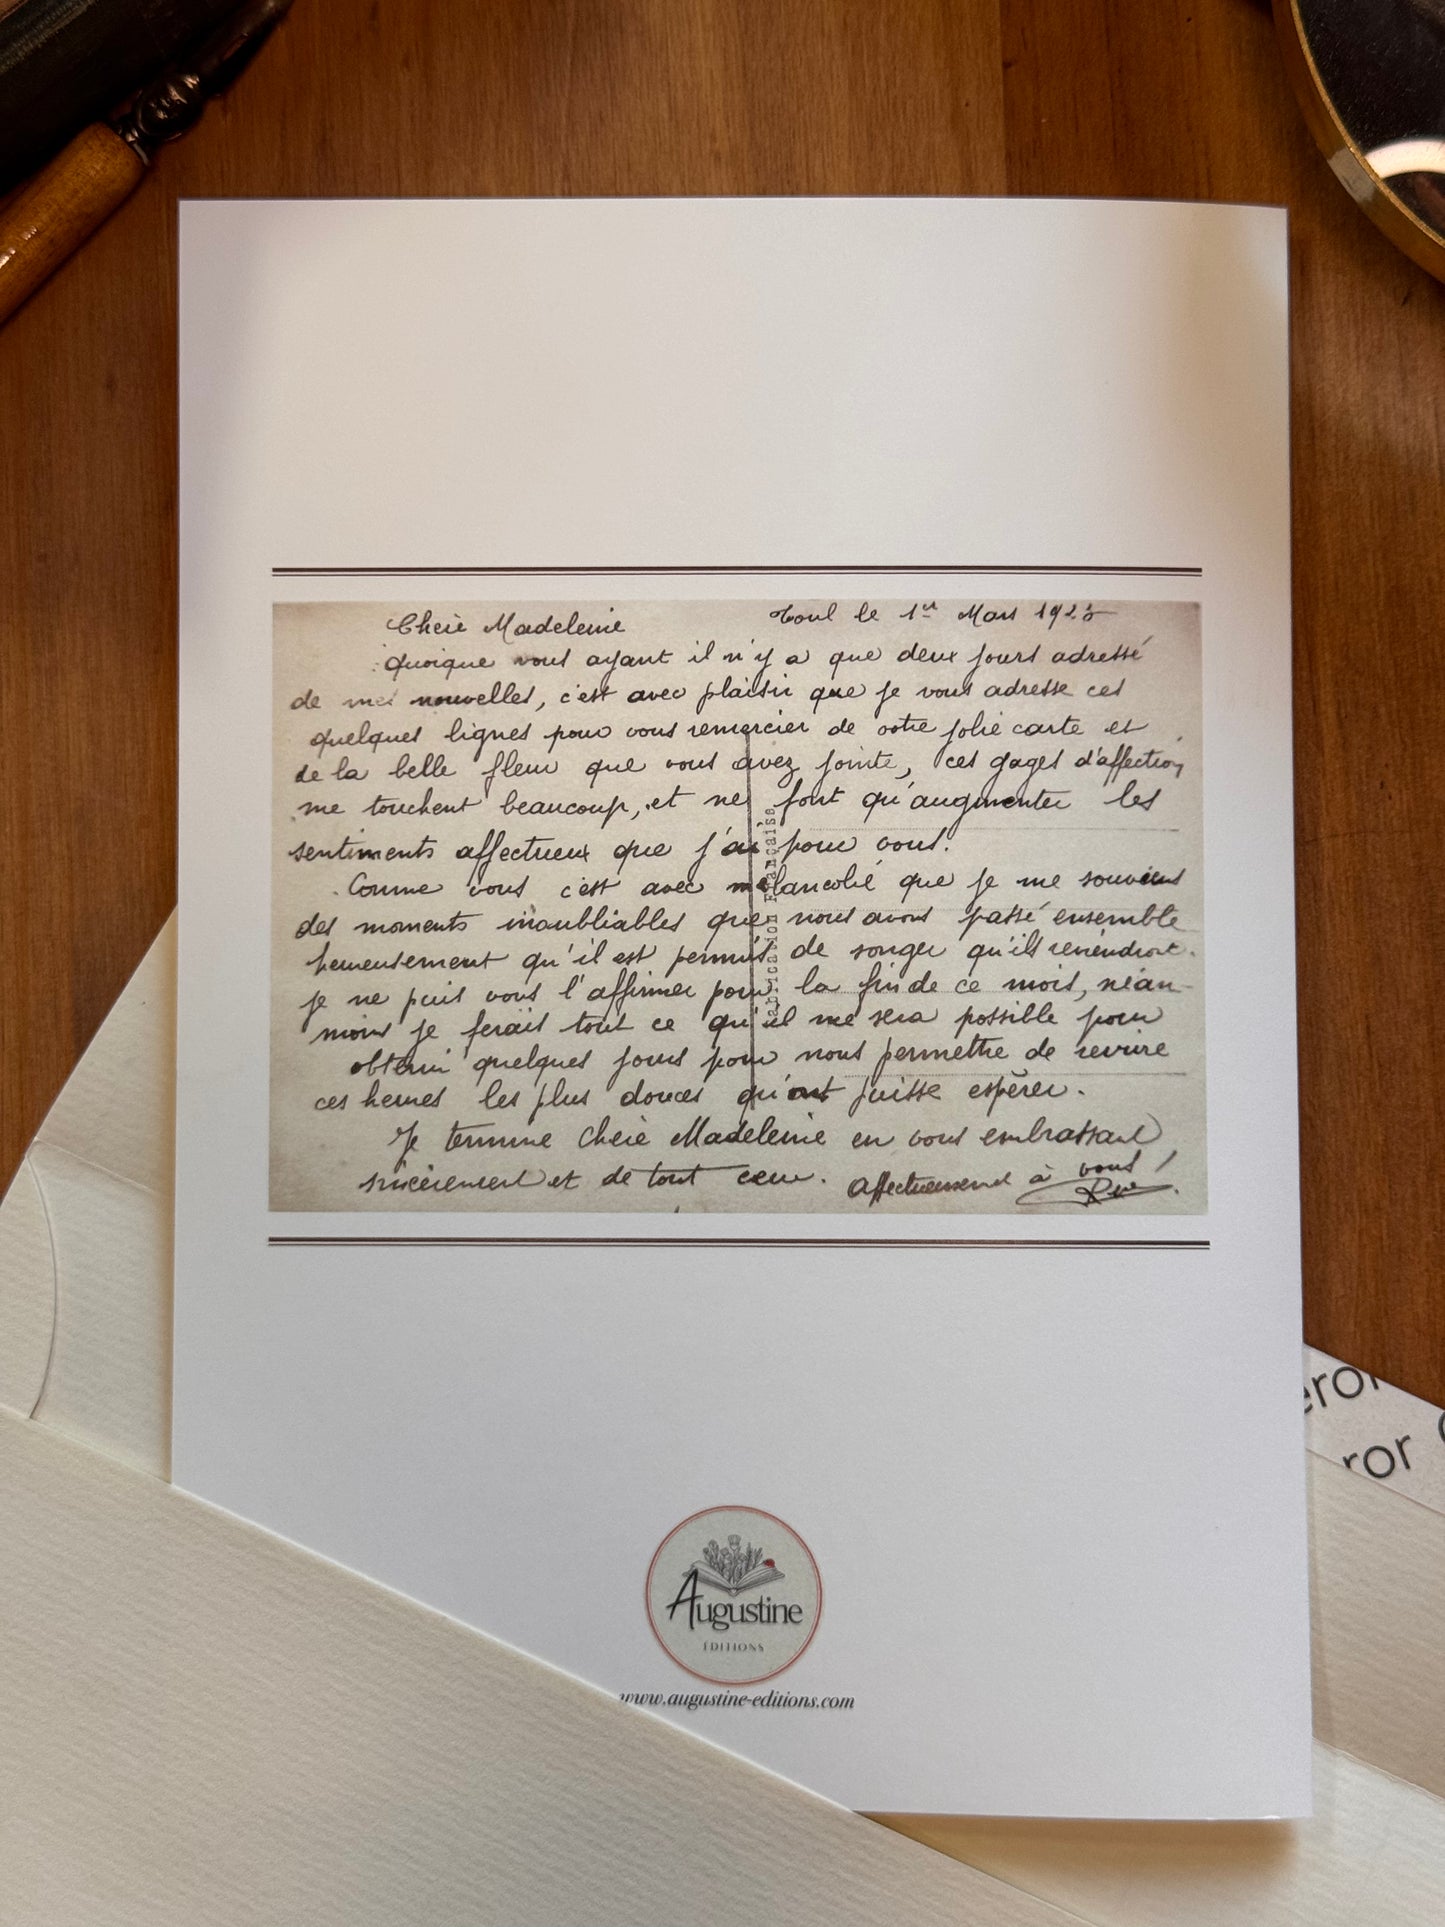 Chère Madeleine
Toul le 1er Mars 1925
Quoique vous ayant il n'y a que deux jours adressé
de mes nouvelles, c'est avec plaisir que je vous adresse ces
quelques lignes pour vous remercier de votre jolie carte et
de la belle fleur que vous avez jointe, ces gages d'affection
me touchent beaucoup, et ne font qu'augmenter les
sentiments affectueux que j'ai pour vous.
Comme vous c'est avec mélancolie que je me souviens
des moments inoubliables que nous avons passé ensemble
heureusement qu'il est permis de songer qu'ils reviendront.
je ne puis vous l'affirmer pour la fin de ce mois, néan-
moins je ferais tout ce qu'il me sera possible pour
obtenir quelques jours pour nous permettre de revivre
ces heures les plus douces qu'ont puisse espérer.
Je termine chère Madeleine en vous embrassant
sincèrement et de tout cœur. Affectueusement à vous!
Fabrication Française
Augustine
ÉDITIONS
www.augustine-editions.com
eror
ror